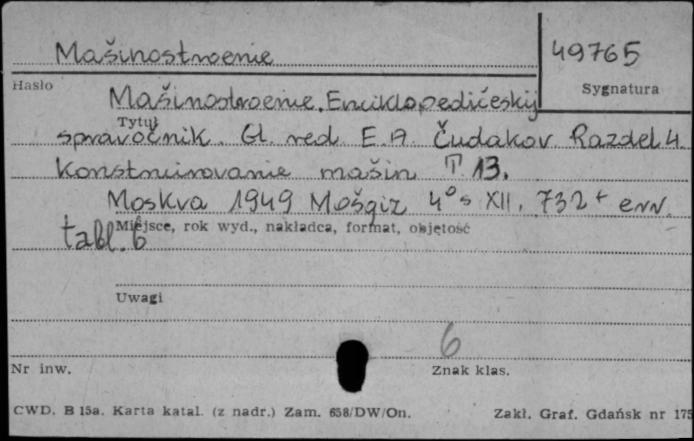 Mašinostroenie
49765
Hasło
Sygnatura
Mašinostroenie. Enciklopedičeskij
Tytuł
spravočnik. Gl. red. E. A. Čudakov. Razdel 4.
Konstruirovanie mašin T. 13.
Moskva 1949 Mošgiz 4° s XII, 732 + err.
Miejsce, rok wyd., nakładca, format, objętość
tabl. 6
Uwagi
6
Nr inw.
Znak klas.
CWD. B 15a. Karta katal. (z nadr.) Zam. 658/DW/On.
Zakł. Graf. Gdańsk nr 175